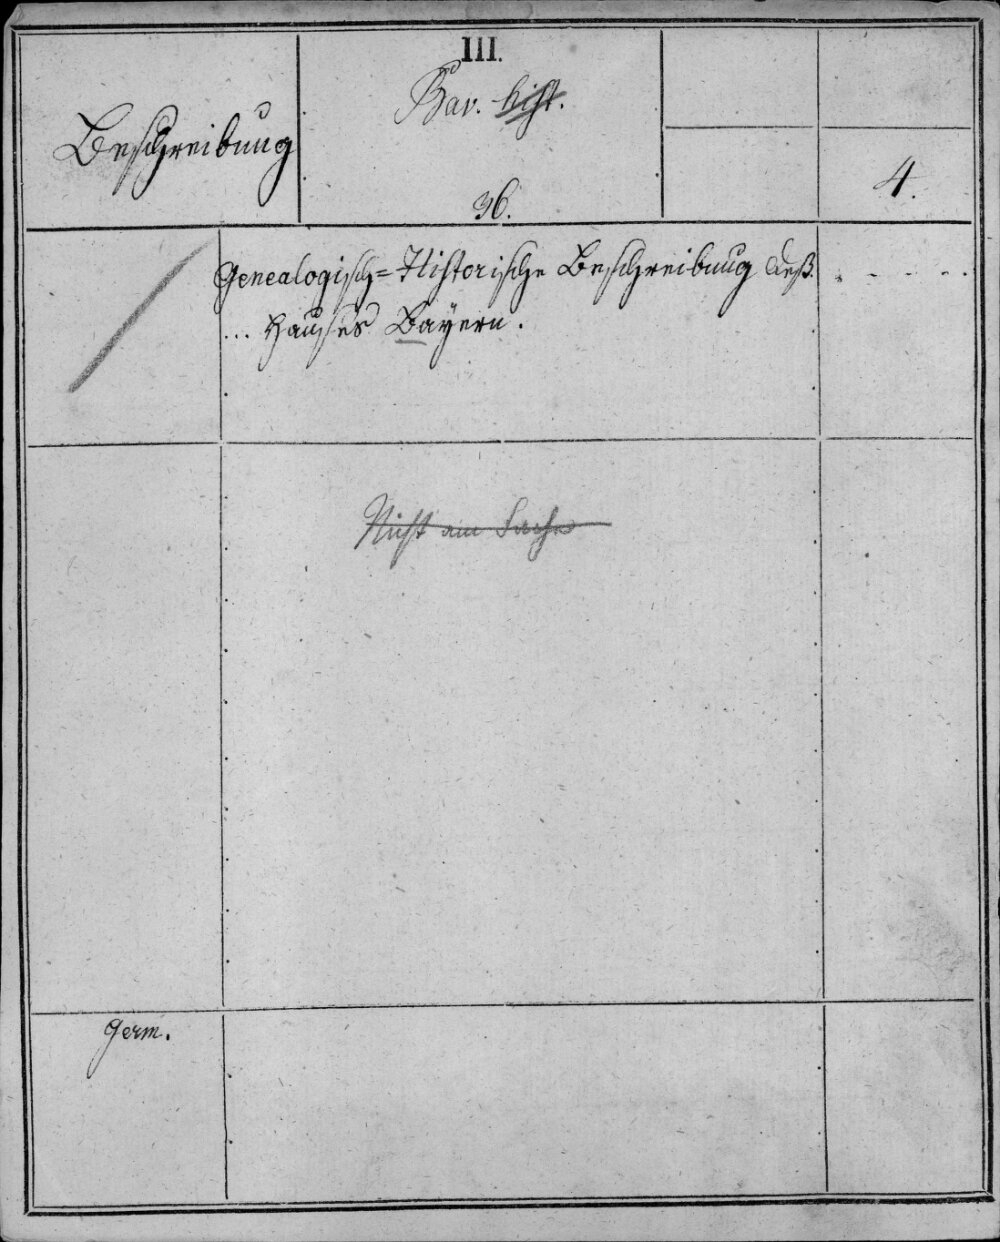 III.
Bav. hist.
Beschreibung
4.
36.
Genealogisch=Historische Beschreibung deß
... Hauses Bayern.
Nicht am
Germ.